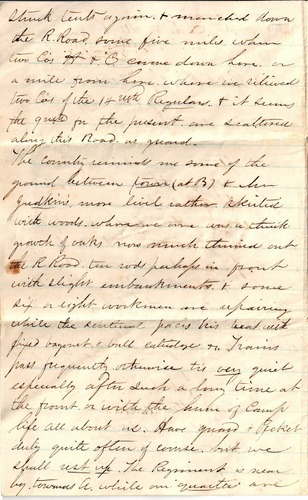 struck tents again & marched down
the R. Road some five miles when
two Co's H & B came down here or
a mile from here where we relieved
two Cos of the 14 Regulars. & it seems
the for the present are scattered
along this Road as guard.
The Country reminds me some of the
ground between (at B) & 
more level rather. skirted
with woods. where we are was a thick
growth of oaks now much thinned out
the R. Road ten rods perhaps in front
with slight embankments. & some
six or eight workmen are repairing
while the sentinel paces his beat with
fixed bayonet & ball cartridge on. Trains
pass frequently otherwise tis very quiet
especially after such a long time at
the front or with the hum of Camp
life all about us. Have guard & Picket
duty quite often of course. but we
shall rest up. The Regiment is near
by towards A. while our quarters are